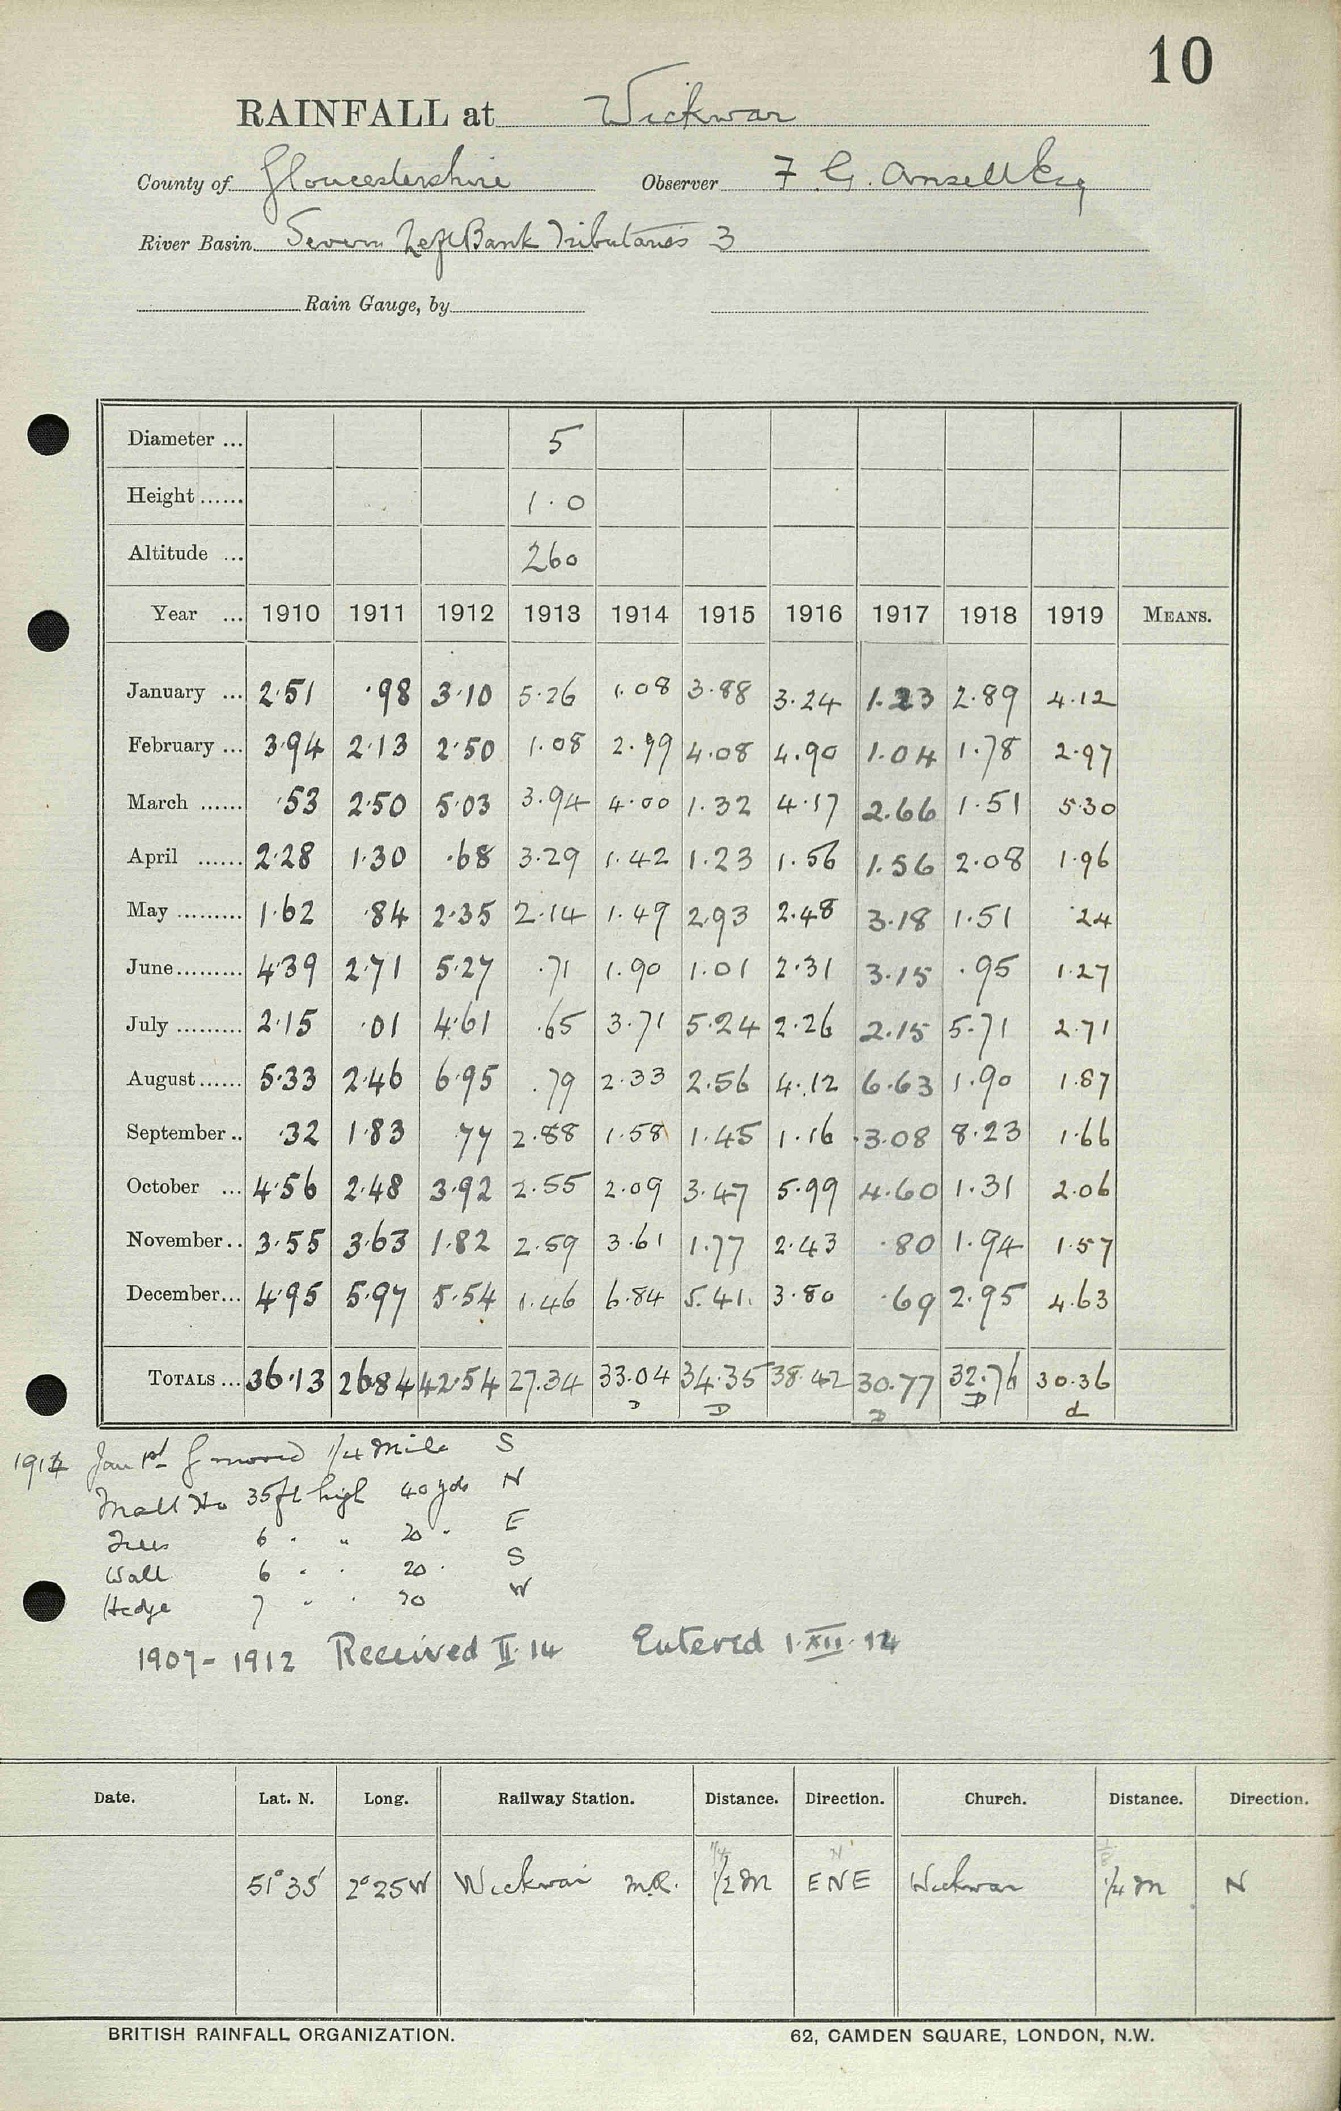 10
RAINFALL at Wickwar
County of Gloucestershire Observer F. G. Ansell Esq
River Basin Severn Left Bank Tributaries 3
Rain Gauge, by
Diameter ... 5
Height ...... 1.0
Altitude ... 260
Year ... 1910 1911 1912 1913 1914 1915 1916 1917 1918 1919 MEANS.
January ... 2.51 .98 3.10 5.26 1.08 3.88 3.24 1.23 2.89 4.12
February ... 3.94 2.13 2.50 1.08 2.99 4.08 4.90 1.04 1.78 2.97
March ...... .53 2.50 5.03 3.94 4.00 1.32 4.17 2.66 1.51 5.30
April ...... 2.28 1.30 .68 3.29 1.42 1.23 1.56 1.56 2.08 1.96
May ......... 1.62 .84 2.35 2.14 1.49 2.93 2.48 3.18 1.51 .24
June ......... 4.39 2.71 5.27 .71 1.90 1.01 2.31 3.15 .95 1.27
July ......... 2.15 .01 4.61 .65 3.71 5.24 2.26 2.15 5.71 2.71
August ...... 5.33 2.46 6.95 .79 2.33 2.56 4.12 6.63 1.90 1.87
September .. .32 1.83 .77 2.88 1.58 1.45 1.16 3.08 8.23 1.66
October ... 4.56 2.48 3.92 2.55 2.09 3.47 5.99 4.60 1.31 2.06
November .. 3.55 3.63 1.82 2.59 3.61 1.77 2.43 .80 1.94 1.57
December ... 4.95 5.97 5.54 1.46 6.84 5.41 3.80 .69 2.95 4.63
TOTALS ... 36.13 26.84 42.54 27.34 33.04 34.35 38.42 30.77 32.76 30.36
D D D D d
Jan 1st G moved 1/4 Mile S
Malt Ho 35ft high 40 yds N
Trees 6 " " 20 " E
Wall 6 " " 20 " S
Hedge 7 " " 20 W
1907-1912 Received II.14 Entered 1.XII.14
Date. Lat. N. Long. Railway Station. Distance. Direction. Church. Distance. Direction.
51°35' 2°25W Wickwar M.R. 1/2 M ENE Wickwar 1/4 m N
BRITISH RAINFALL ORGANIZATION. 62, CAMDEN SQUARE, LONDON, N.W.